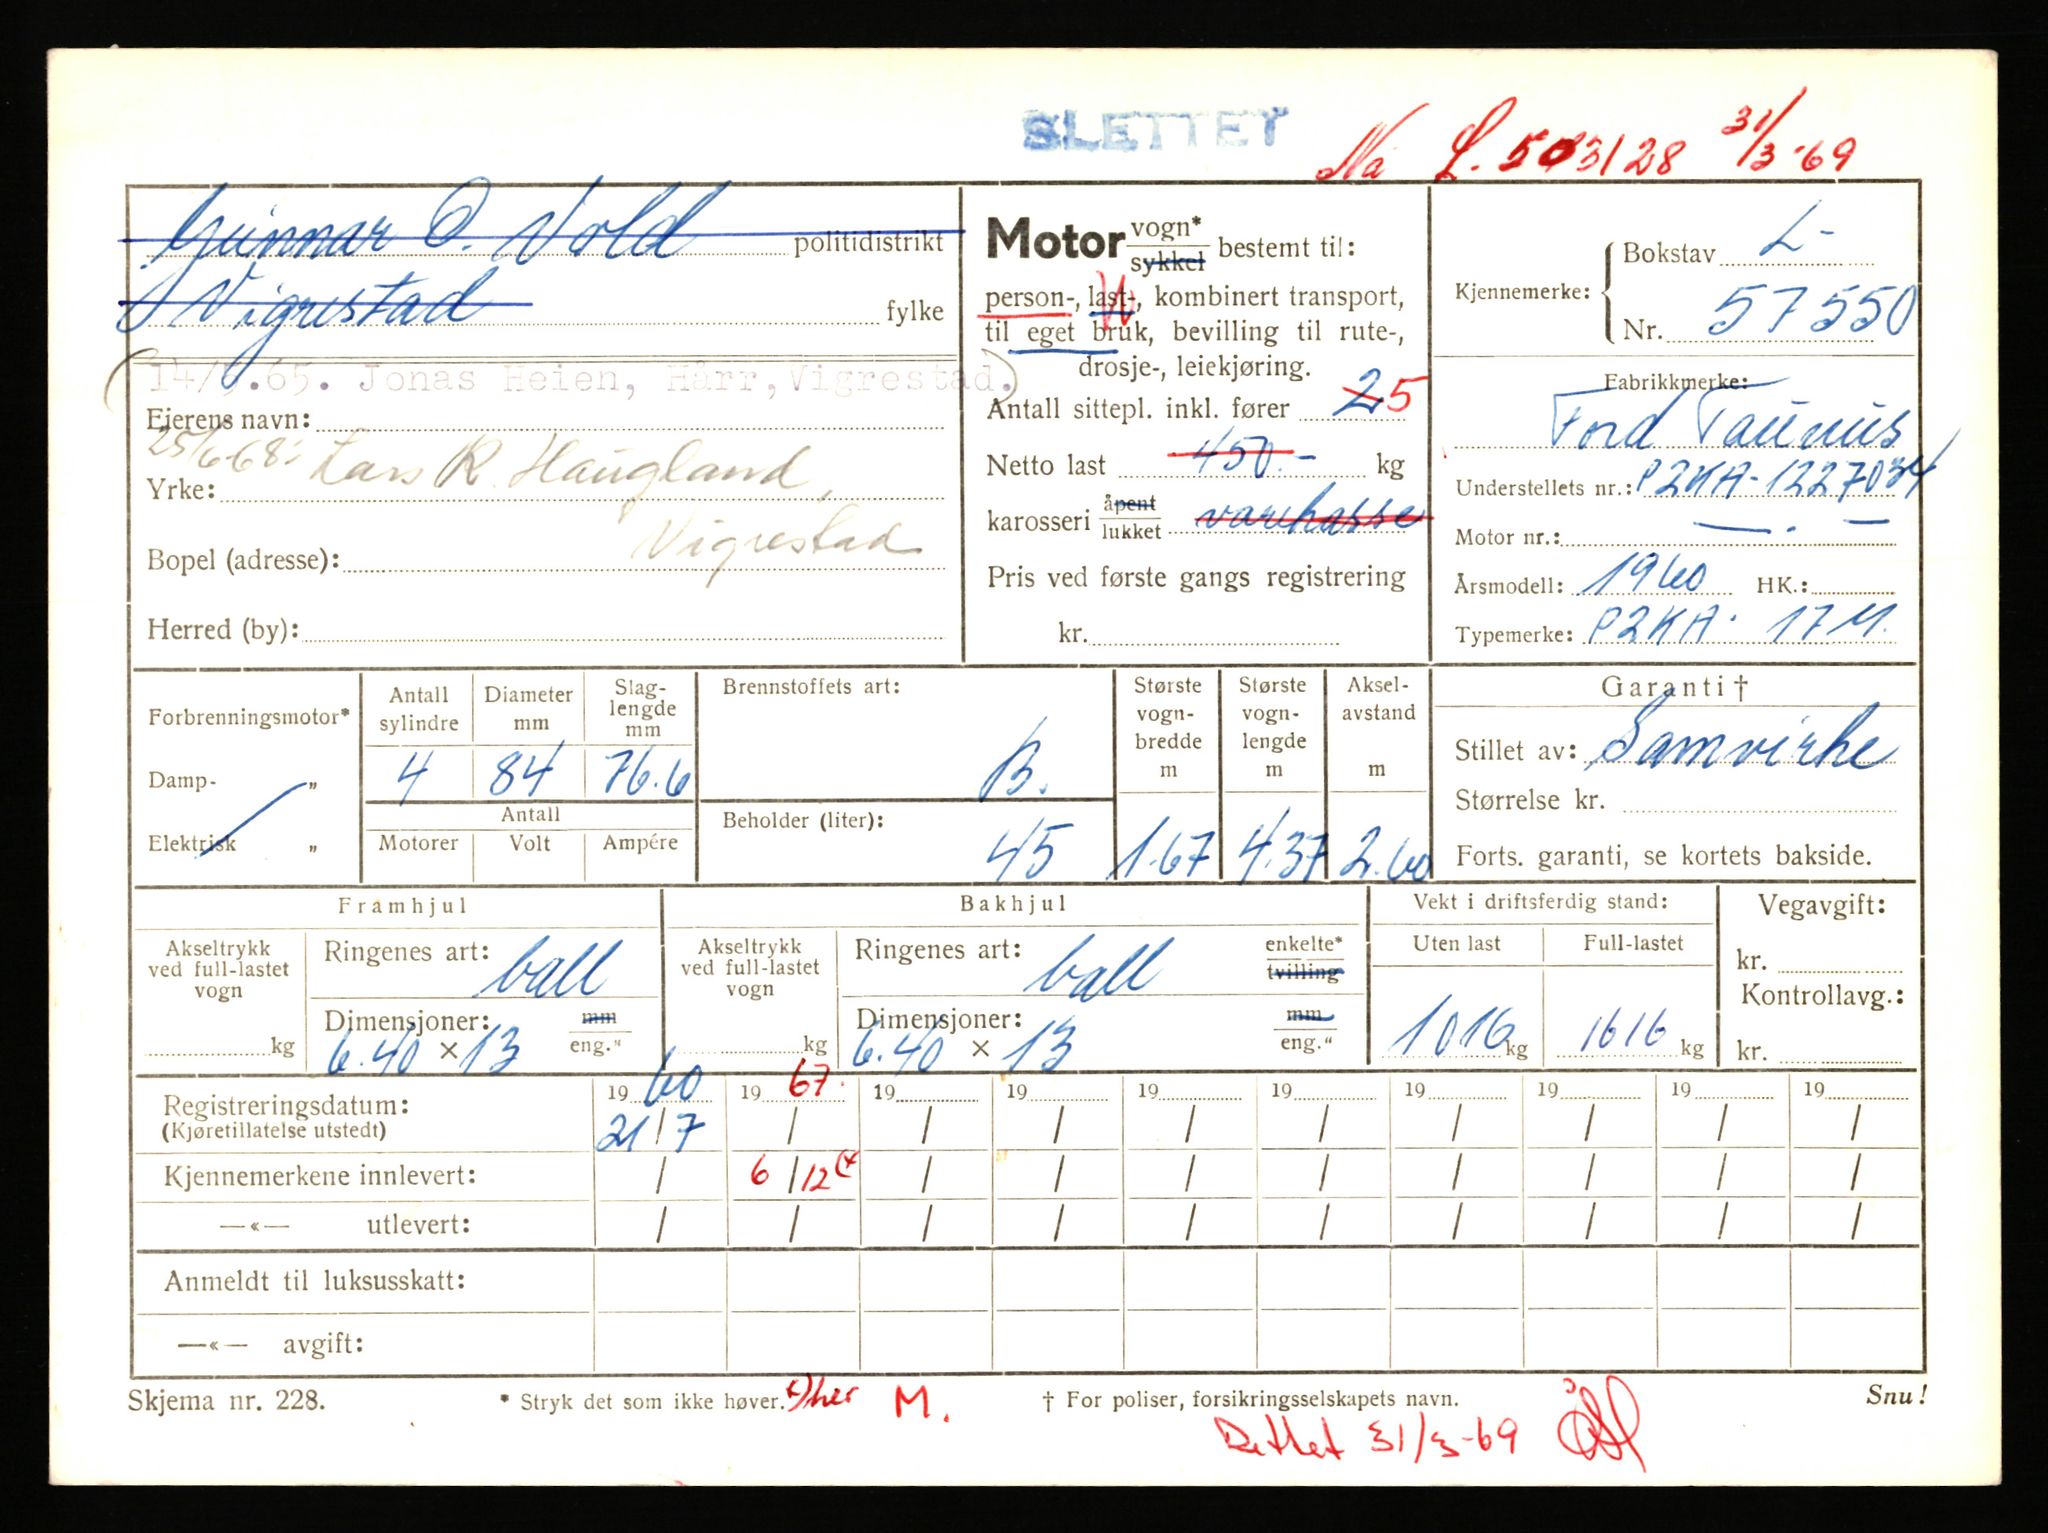 SLETTET
Nå L. 503128 31/3-69
Gunnar O. Vold politidistrikt
Vigrestad fylke
14/ .65. Jonas Heien, Hårr, Vigrestad.
Eierens navn:
25/6-68: Lars R. Haugland,
Yrke:
Vigrestad
Bopel (adresse):
Herred (by):
Motor vogn* sykkel bestemt til:
person-, last-, kombinert transport,
til eget bruk, bevilling til rute-,
drosje-, leiekjøring.
Antall sittepl. inkl. fører 2 5
Netto last 450.- kg
karosseri åpent lukket varekasse
Pris ved første gangs registrering
kr.
Kjennemerke: Bokstav L-
Nr. 57550
Fabrikkmerke:
Ford Taunus
Understellets nr.: P2KA-1227034
Motor nr.: — . —
Årsmodell: 1960 HK.:
Typemerke: P2KA. 17M.
Forbrenningsmotor*
Damp- „
Elektrisk „
Antall sylindre 4
Diameter mm 84
Slaglengde mm 76.6
Antall
Motorer Volt Ampére
Brennstoffets art: B.
Beholder (liter): 45
Største vogn-bredde m 1.67
Største vogn-lengde m 4.37
Aksel-avstand m 2.60
Garanti †
Stillet av: Samvirke
Størrelse kr.
Forts. garanti, se kortets bakside.
Framhjul
Akseltrykk ved full-lastet vogn kg
Ringenes art: ball
Dimensjoner: mm
6.40 × 13 eng."
Bakhjul
Akseltrykk ved full-lastet vogn kg
Ringenes art: ball enkelte* tvilling
Dimensjoner: mm
6.40 × 13 eng."
Vekt i driftsferdig stand:
Uten last Full-lastet
1016 kg 1616 kg
Vegavgift:
kr.
Kontrollavg.:
kr.
19 60 19 67. 19 19 19 19 19 19 19 19
Registreringsdatum: 21/7 / / / / / / / / /
(Kjøretillatelse utstedt)
Kjennemerkene innlevert: / 6/12 / / / / / / / /
—«— utlevert: / / / / / / / / / /
Anmeldt til luksusskatt:
—«— avgift:
Skjema nr. 228. * Stryk det som ikke høver. x) her M. † For poliser, forsikringsselskapets navn. Snu!
31/3-69